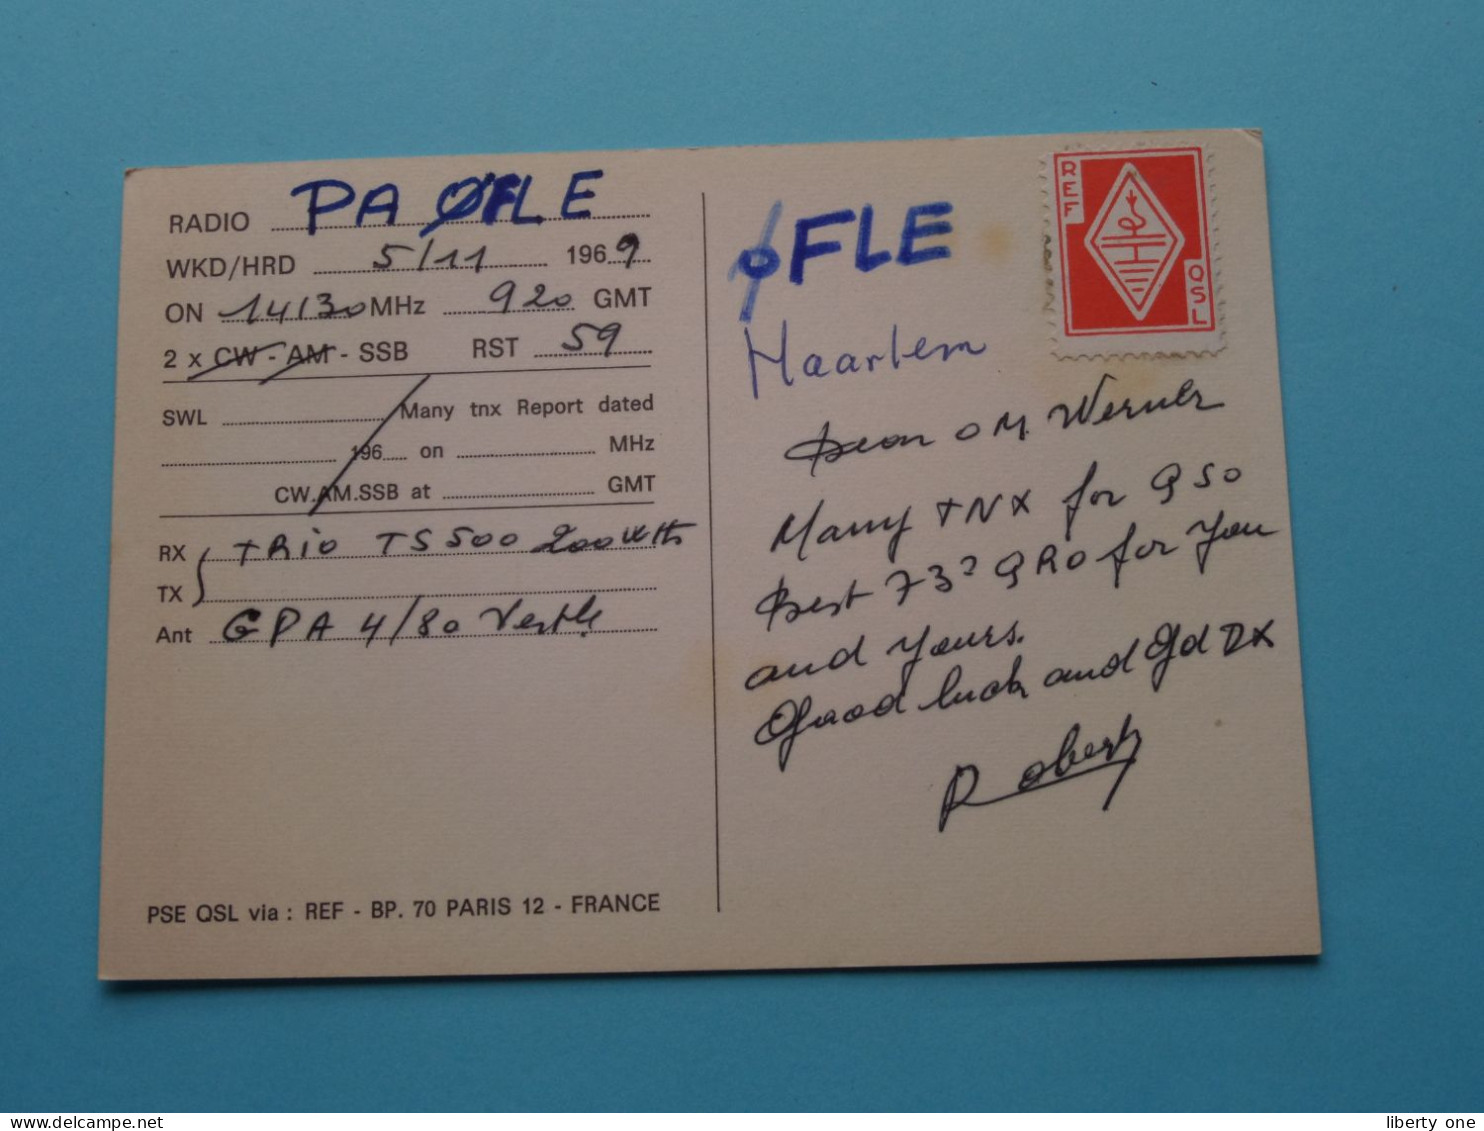 RADIO PA ØFLE
WKD/HRD 5/11 1969
ON 14130 MHz 920 GMT
2 x CW - AM - SSB RST 59
SWL Many tnx Report dated
196 on MHz
CW.AM.SSB at GMT
RX TRIO TS 500 200 Watts
TX
Ant GPA 4/80 Vertic
PSE QSL via : REF - BP. 70 PARIS 12 - FRANCE
REF
QSL
ØFLE
Haarlem
Dear OM Werner
Many TNX for QSO
Best 73s QRO for you
and yours.
Good luck and Gd DX
Robert
delcampe.net
liberty one